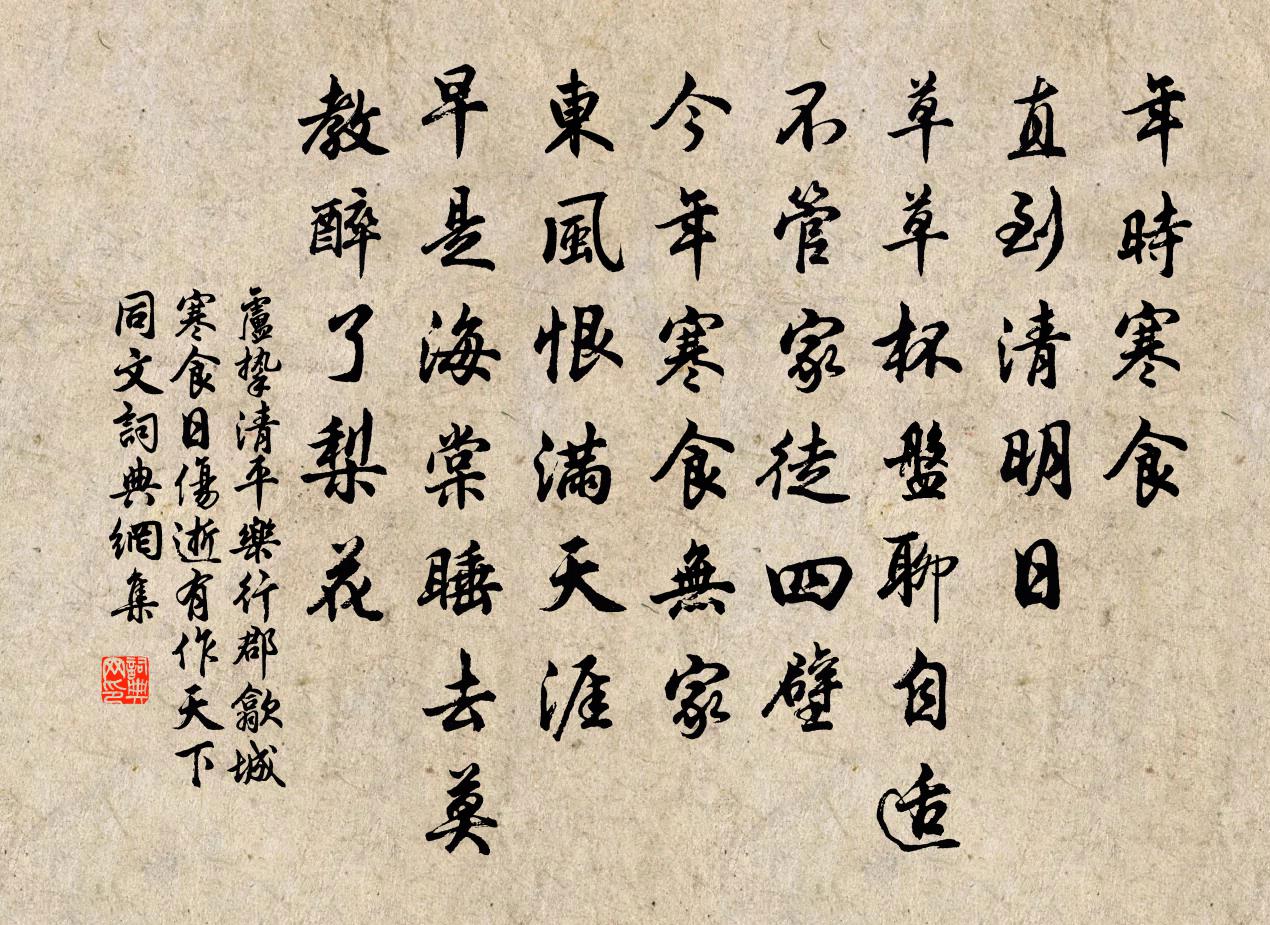 年時寒食
直到清明日
草草杯盤聊自适
不管家徒四壁
今年寒食無家
東風恨滿天涯
早是海棠睡去莫
教醉了梨花
盧摯清平樂行郡歙城
寒食日傷逝有作天下
同文詞典網集
詞典
网印